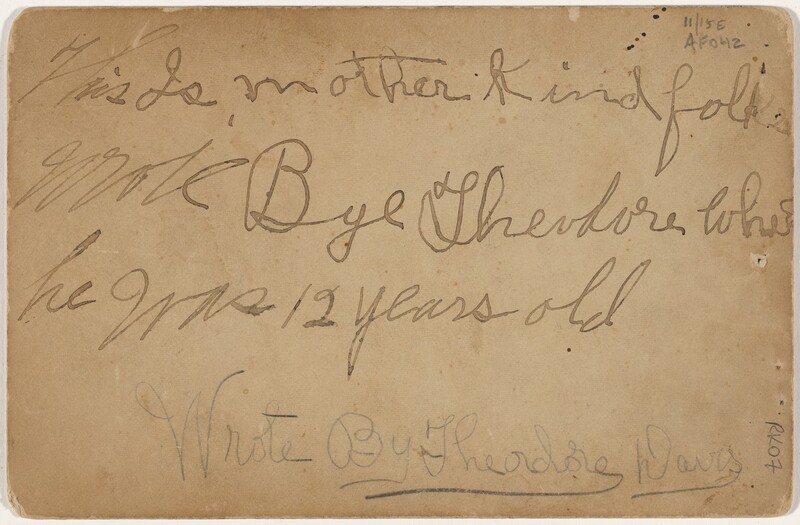 11/15E
AF042
This Is mother Kind folks
Wrote Bye Theodore when
he was 12 years old
Wrote By Theodore Davis
RK07